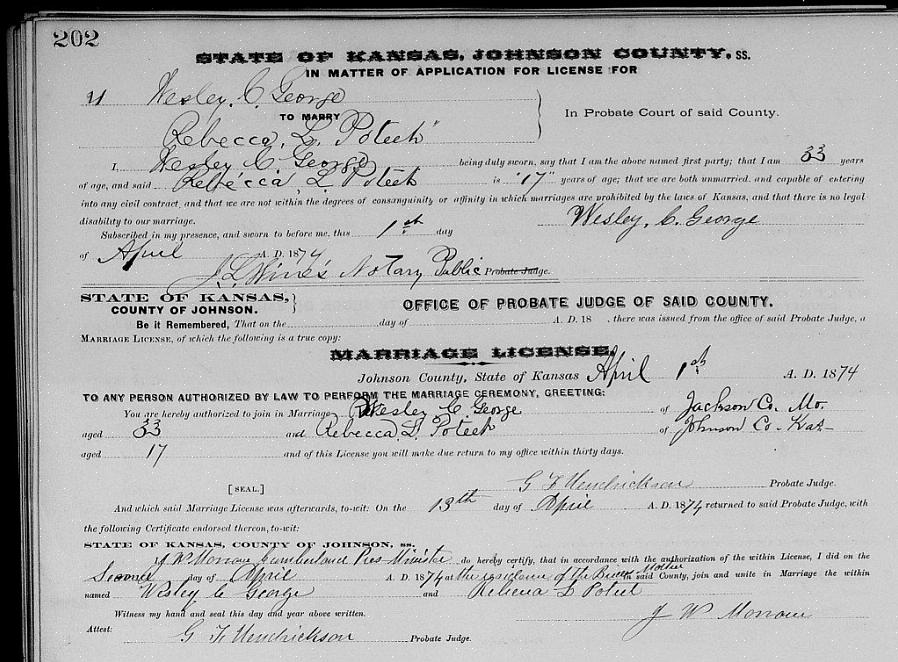 202
STATE OF KANSAS, JOHNSON COUNTY, SS.
IN MATTER OF APPLICATION FOR LICENSE FOR
Wesley. C. George
TO MARRY
In Probate Court of said County.
Rebecca, L. Poteet"
I, Wesley C George being duly sworn, say that I am the above named first party; that I am 33 years
of age, and said Rebecca, L. Poteet is "17" years of age; that we are both unmarried, and capable of entering
into any civil contract, and that we are not within the degrees of consanguinity or affinity in which marriages are prohibited by the laws of Kansas, and that there is no legal
disability to our marriage. Wesley, C. George
Subscribed in my presence, and sworn to before me, this 1st day
of April A. D. 1874
J. L. Wines Notary Public Probate Judge.
STATE OF KANSAS,
COUNTY OF JOHNSON.
OFFICE OF PROBATE JUDGE OF SAID COUNTY.
Be it Remembered, That on the day of A. D. 18 , there was issued from the office of said Probate Judge, a
MARRIAGE LICENSE, of which the following is a true copy:
MARRIAGE LICENSE,
Johnson County, State of Kansas April 1st A. D. 1874
TO ANY PERSON AUTHORIZED BY LAW TO PERFORM THE MARRIAGE CEREMONY, GREETING:
You are hereby authorized to join in Marriage Wesley C. George of Jackson Co, Mo.
aged 33 and Rebecca L. Poteet of Johnson Co- Kas-
aged 17 and of this License you will make due return to my office within thirty days.
[SEAL.] G F Hendrickson Probate Judge.
And which said Marriage License was afterwards, to-wit: On the 13th day of April A. D. 1874 returned to said Probate Judge, with
the following Certificate endorsed thereon, to-wit:
STATE OF KANSAS, COUNTY OF JOHNSON, ss.
J W Morrow Cumberland Pres Minister do hereby certify, that in accordance with the authorization of the within License, I did on the
Second day of April A. D. 1874 at the residence of the Brides Mother in said County, join and unite in Marriage the within
named Wesley C George and Rebecca L Poteet
Witness my hand and seal this day and year above written. J W Morrow
Attest: G F Hendrickson Probate Judge.